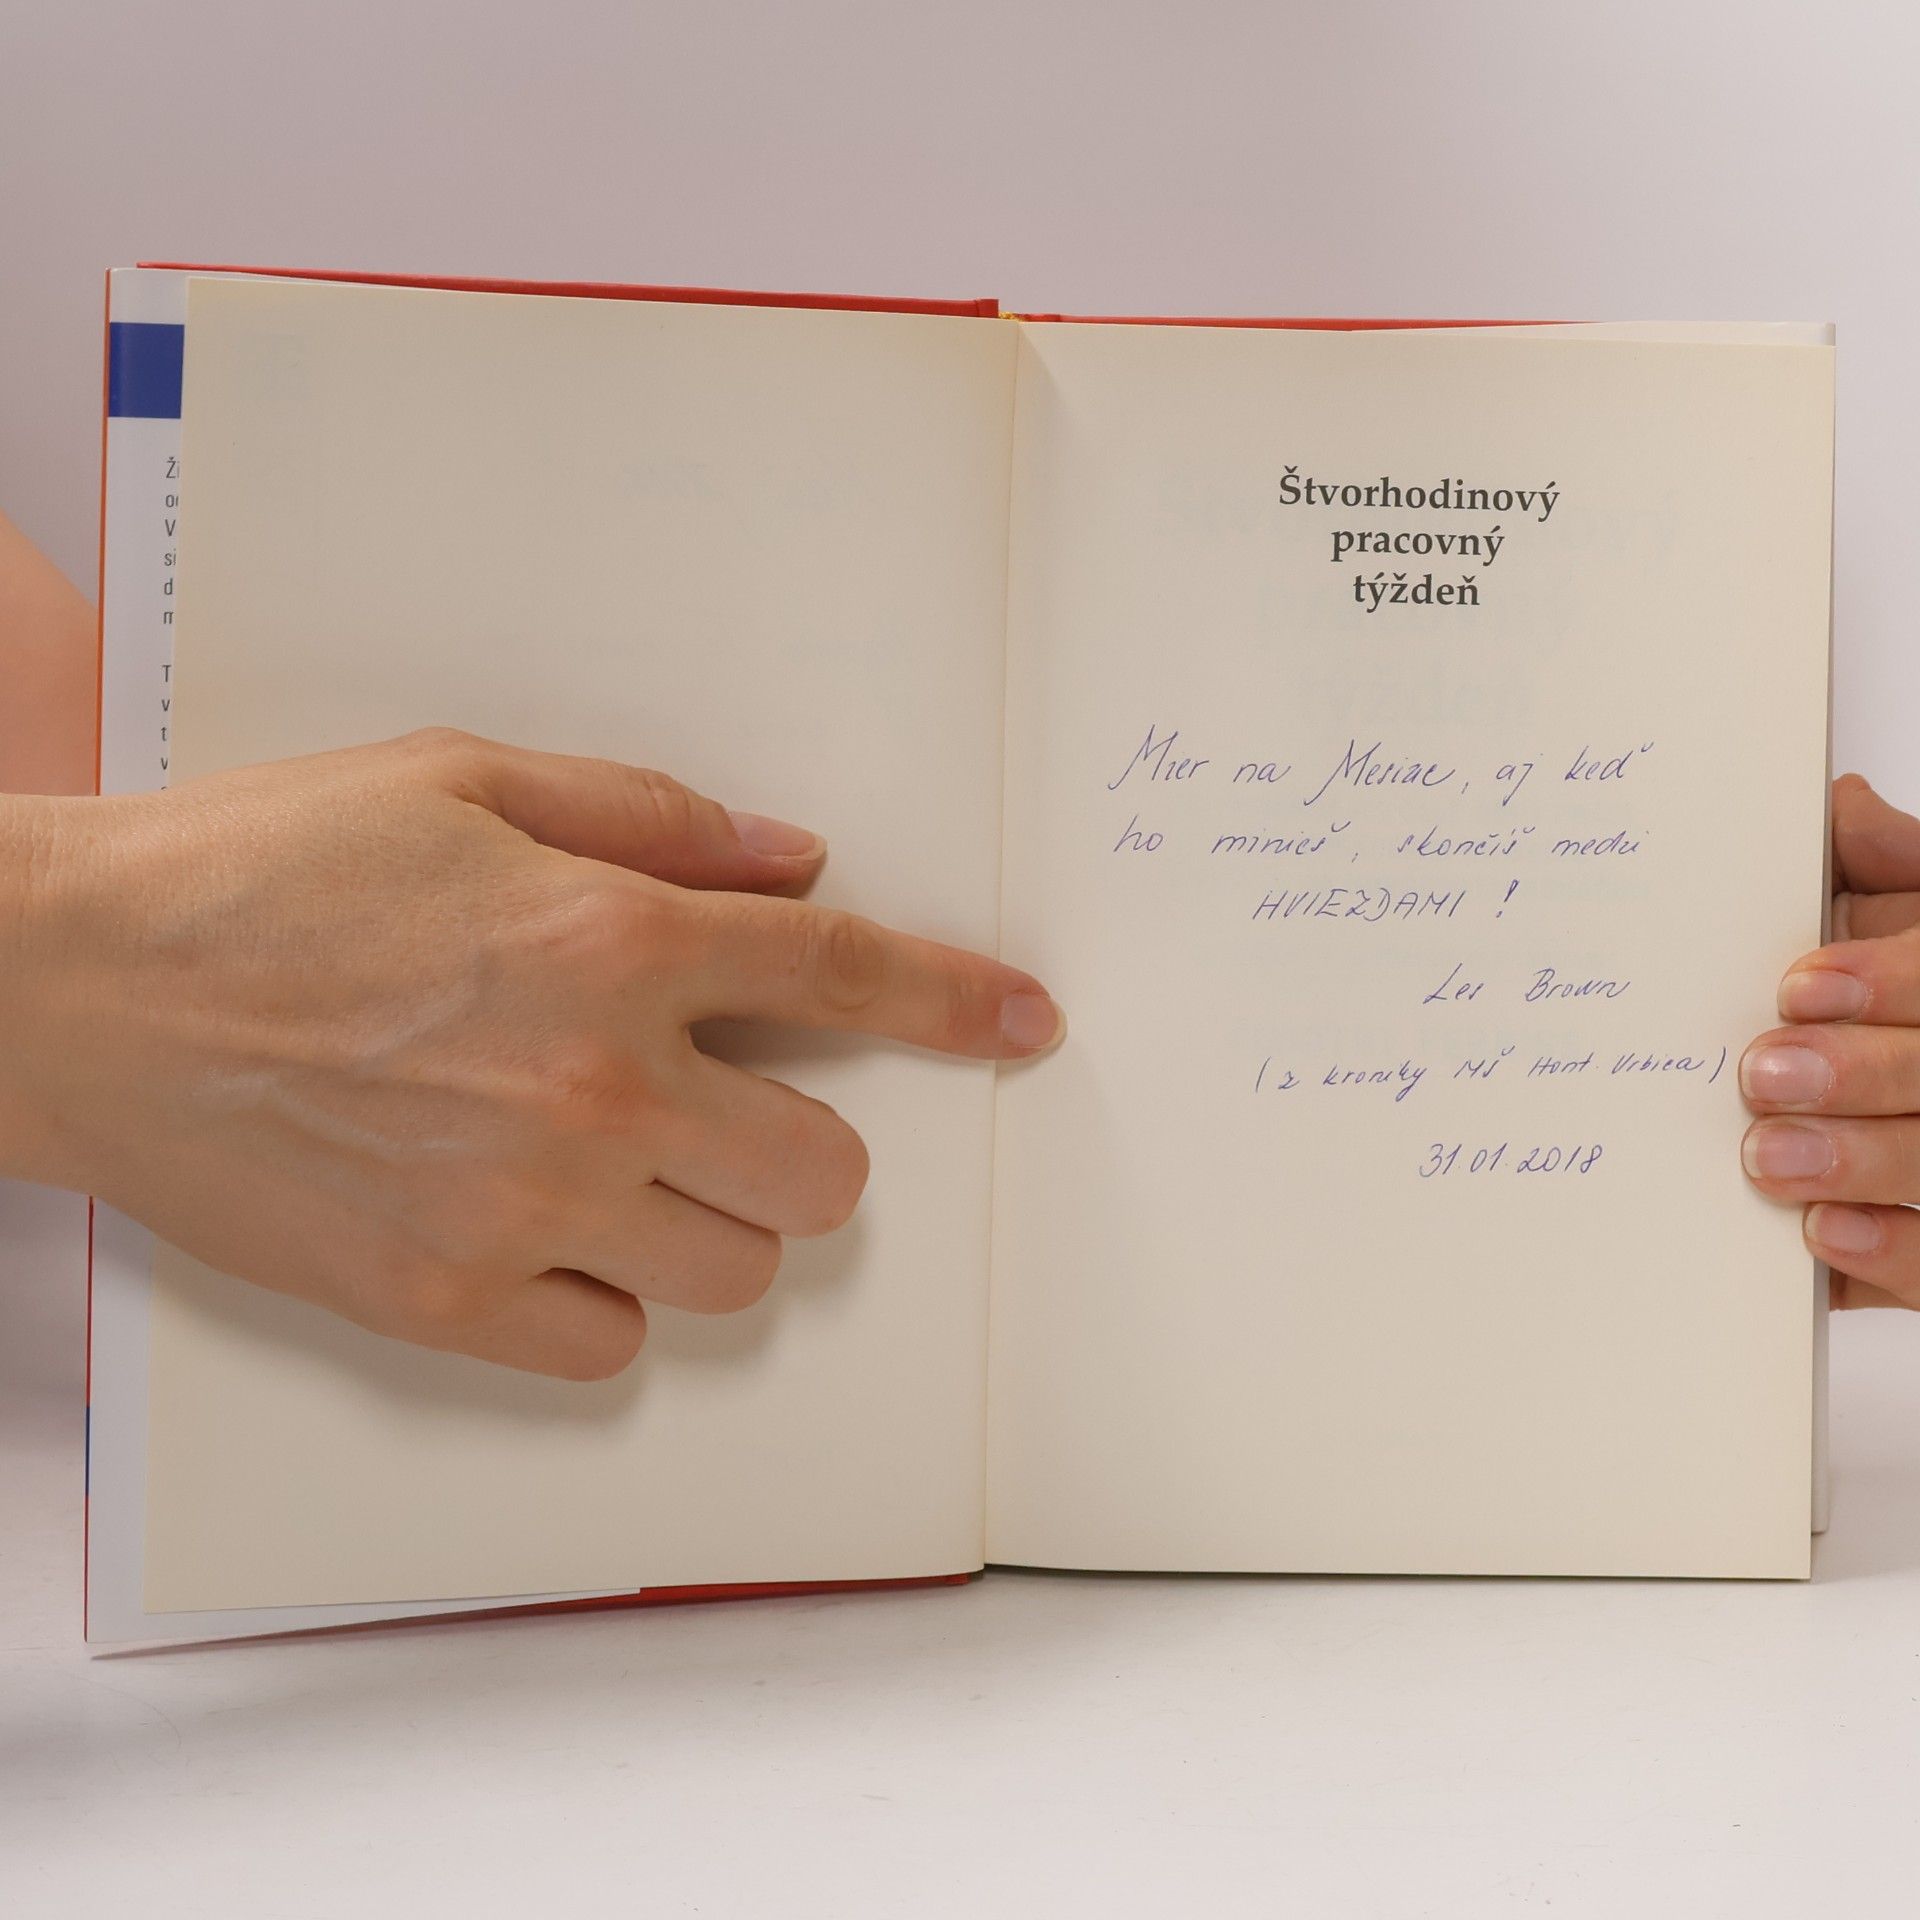 Ži
V
si
d
m
T
v
t
v
Štvorhodinový
pracovný
týždeň
Mier na Mesiac, aj keď
ho minieš, skončíš medzi
HVIEZDAMI !
Les Brown
(z kroniky MŠ Hont. Vrbica)
31.01.2018